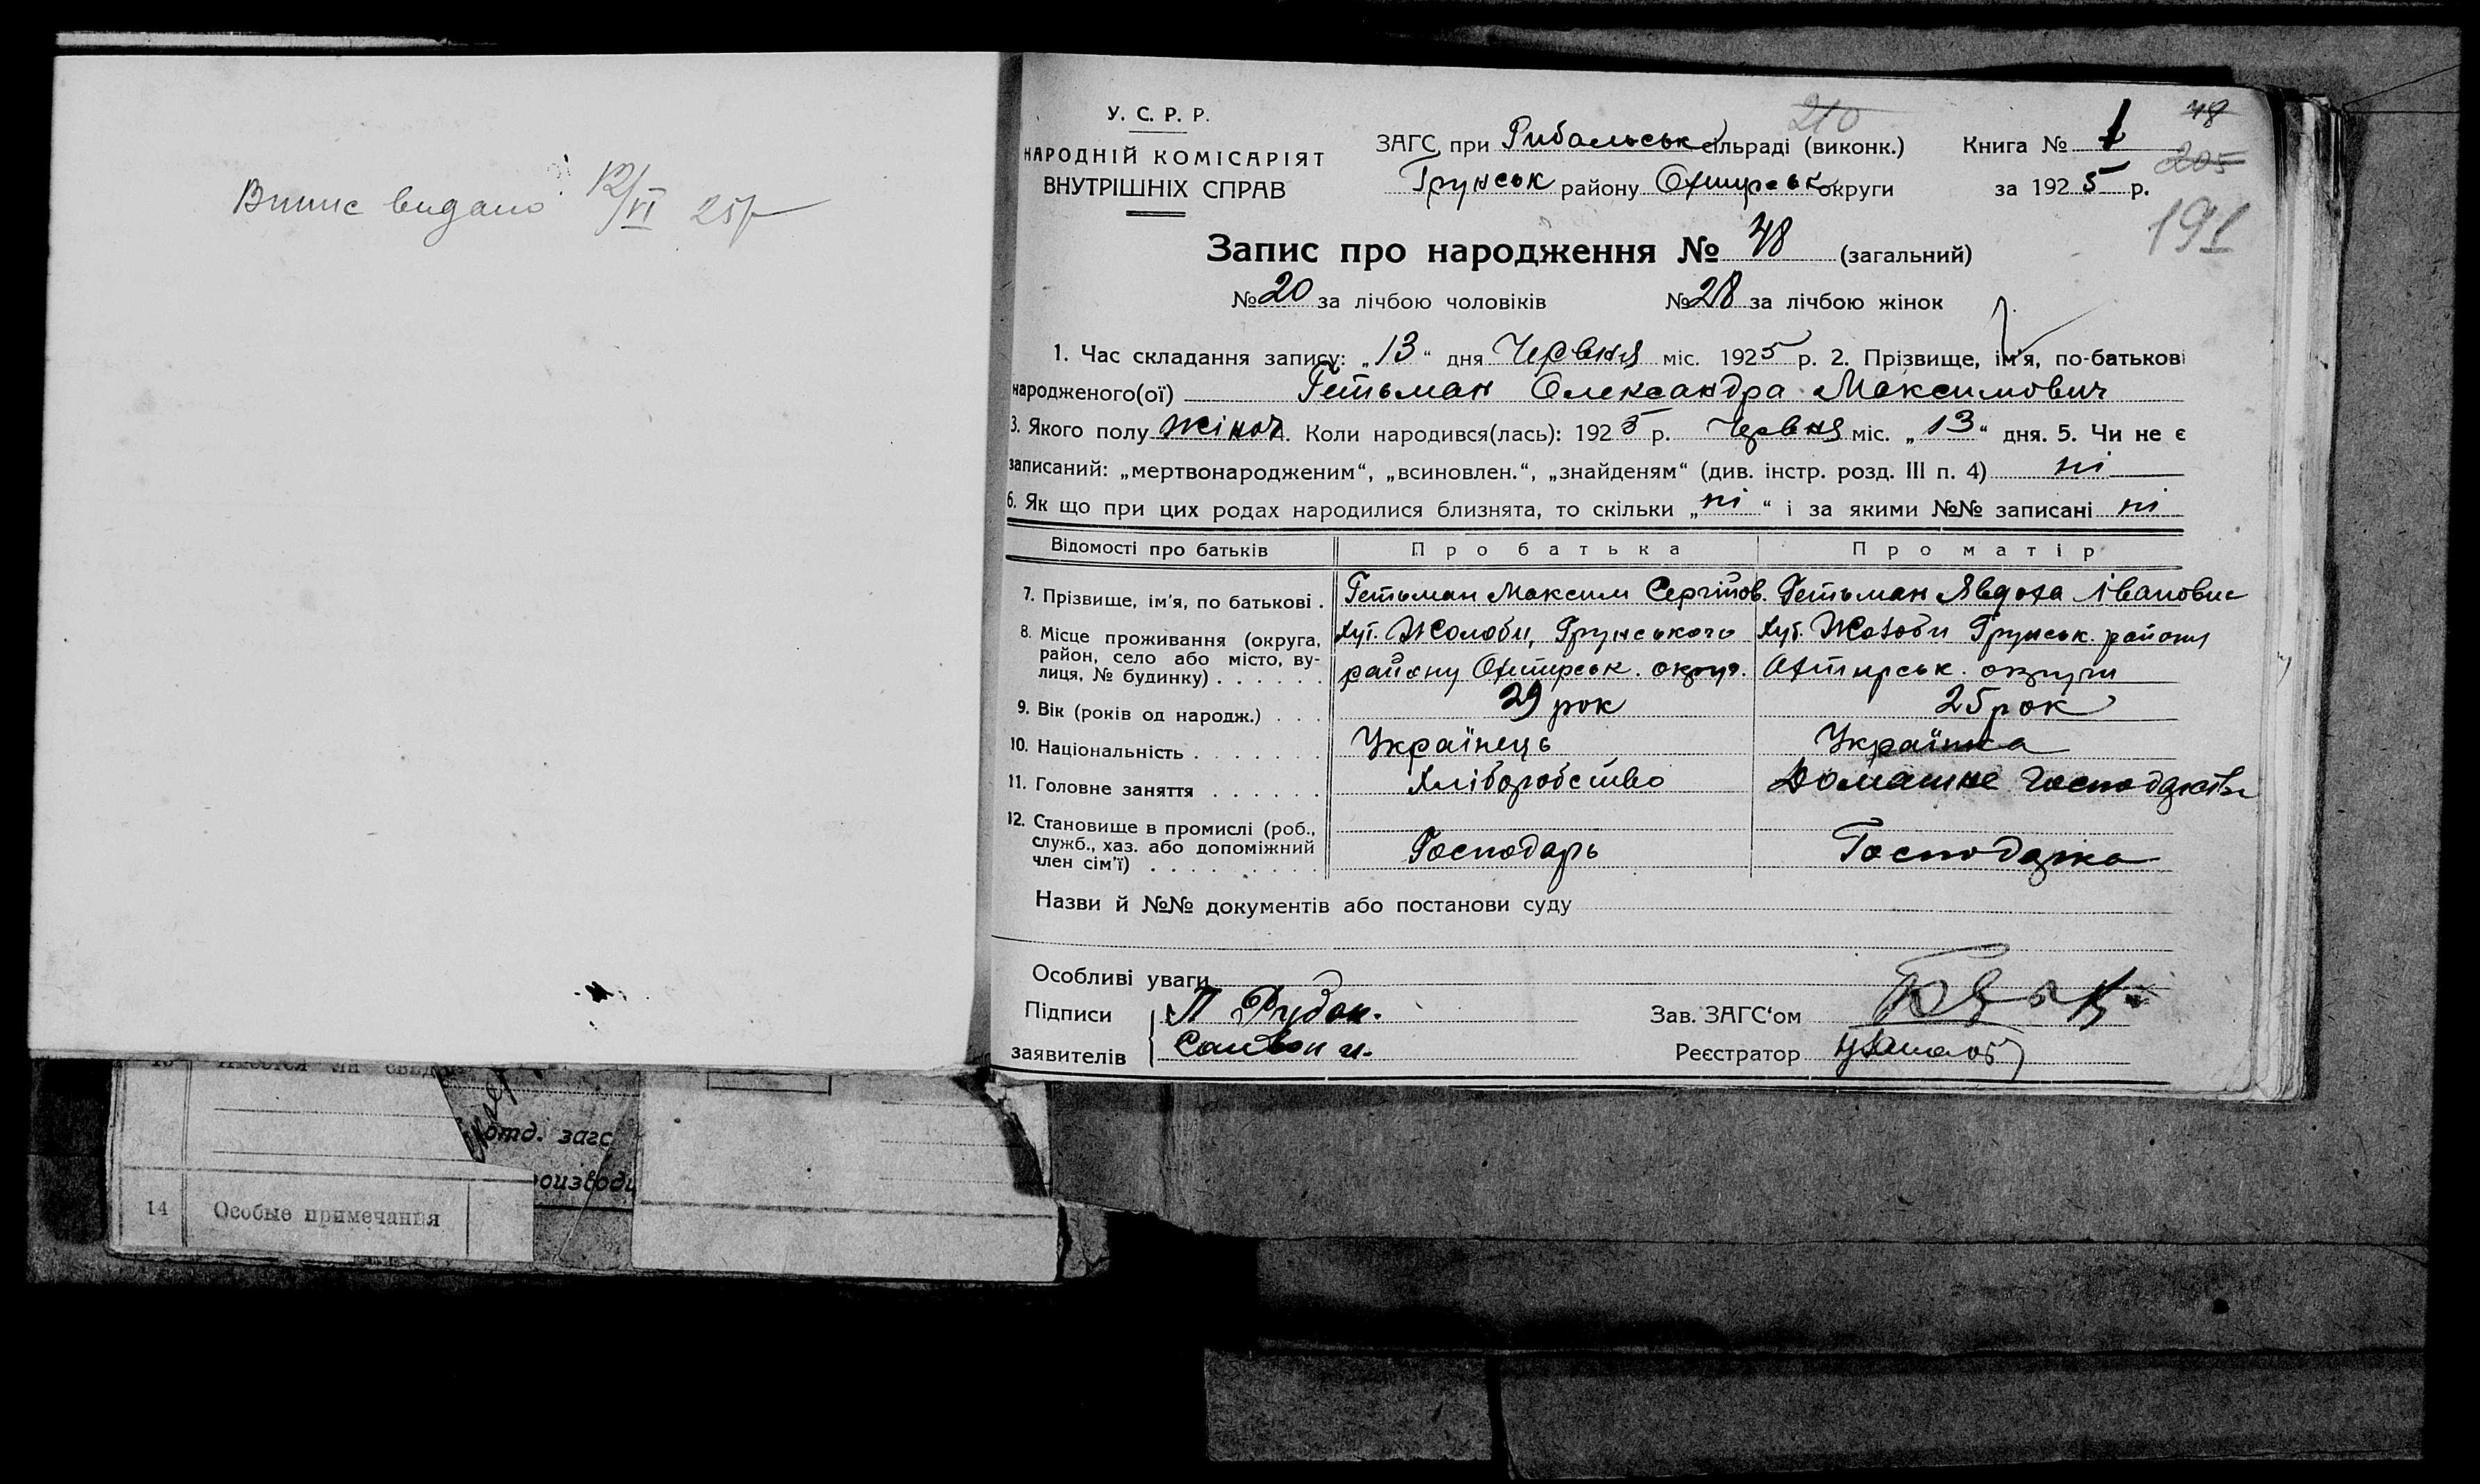 Випис видано 12/VI 25р
У. С. Р. Р.
НАРОДНІЙ КОМІСАРІЯТ
ВНУТРІШНІХ СПРАВ
210
ЗАГС при Рибальськ сільраді (виконк.)
Грунськ району Охтирськ округи
Книга № 1
за 1925 р.
48
205
191
Запис про народження № 48 (загальний)
№ 20 за лічбою чоловіків № 28 за лічбою жінок
1. Час складання запису: „13“ дня Червня міс. 1925 р. 2. Прізвище, ім'я, по-батькові
народженого(ої) Гетьман Олександра Максимович
3. Якого полу жіноч 4. Коли народився(лась): 1925 р. Червня міс. „13“ дня. 5. Чи не є
записаний: „мертвонародженим“, „всиновлен.“, „знайденям“ (див. інстр. розд. III п. 4) ні
6. Як що при цих родах народилися близнята, то скільки „ні“ і за якими №№ записані ні
Відомості про батьків Про батька Про матір
7. Прізвище, ім'я, по батькові . Гетьман Максим Сергійов. Гетьман Явдоха Івановис
8. Місце проживання (округа, хут. Жолоби, Грунського хут. Жолоби Грунськ. району
район, село або місто, ву-
лиця, № будинку) . . . . . . району Охтирськ. округ. Охтирськ. округи
9. Вік (років од народж.) . . . 29 рок 25 рок
10. Національність . . . . . . . Українець Українка
11. Головне заняття . . . . . . Хліборобство Домашнє господарство
12. Становище в промислі (роб.,
служб., хаз. або допоміжний
член сім'ї) . . . . . . . . . Господарь Господарка
Назви й №№ документів або постанови суду
Особливі уваги
Підписи П Рудон.
Зав. ЗАГС'ом
заявителів
Реєстратор
отд. загс
14 Особые примечания